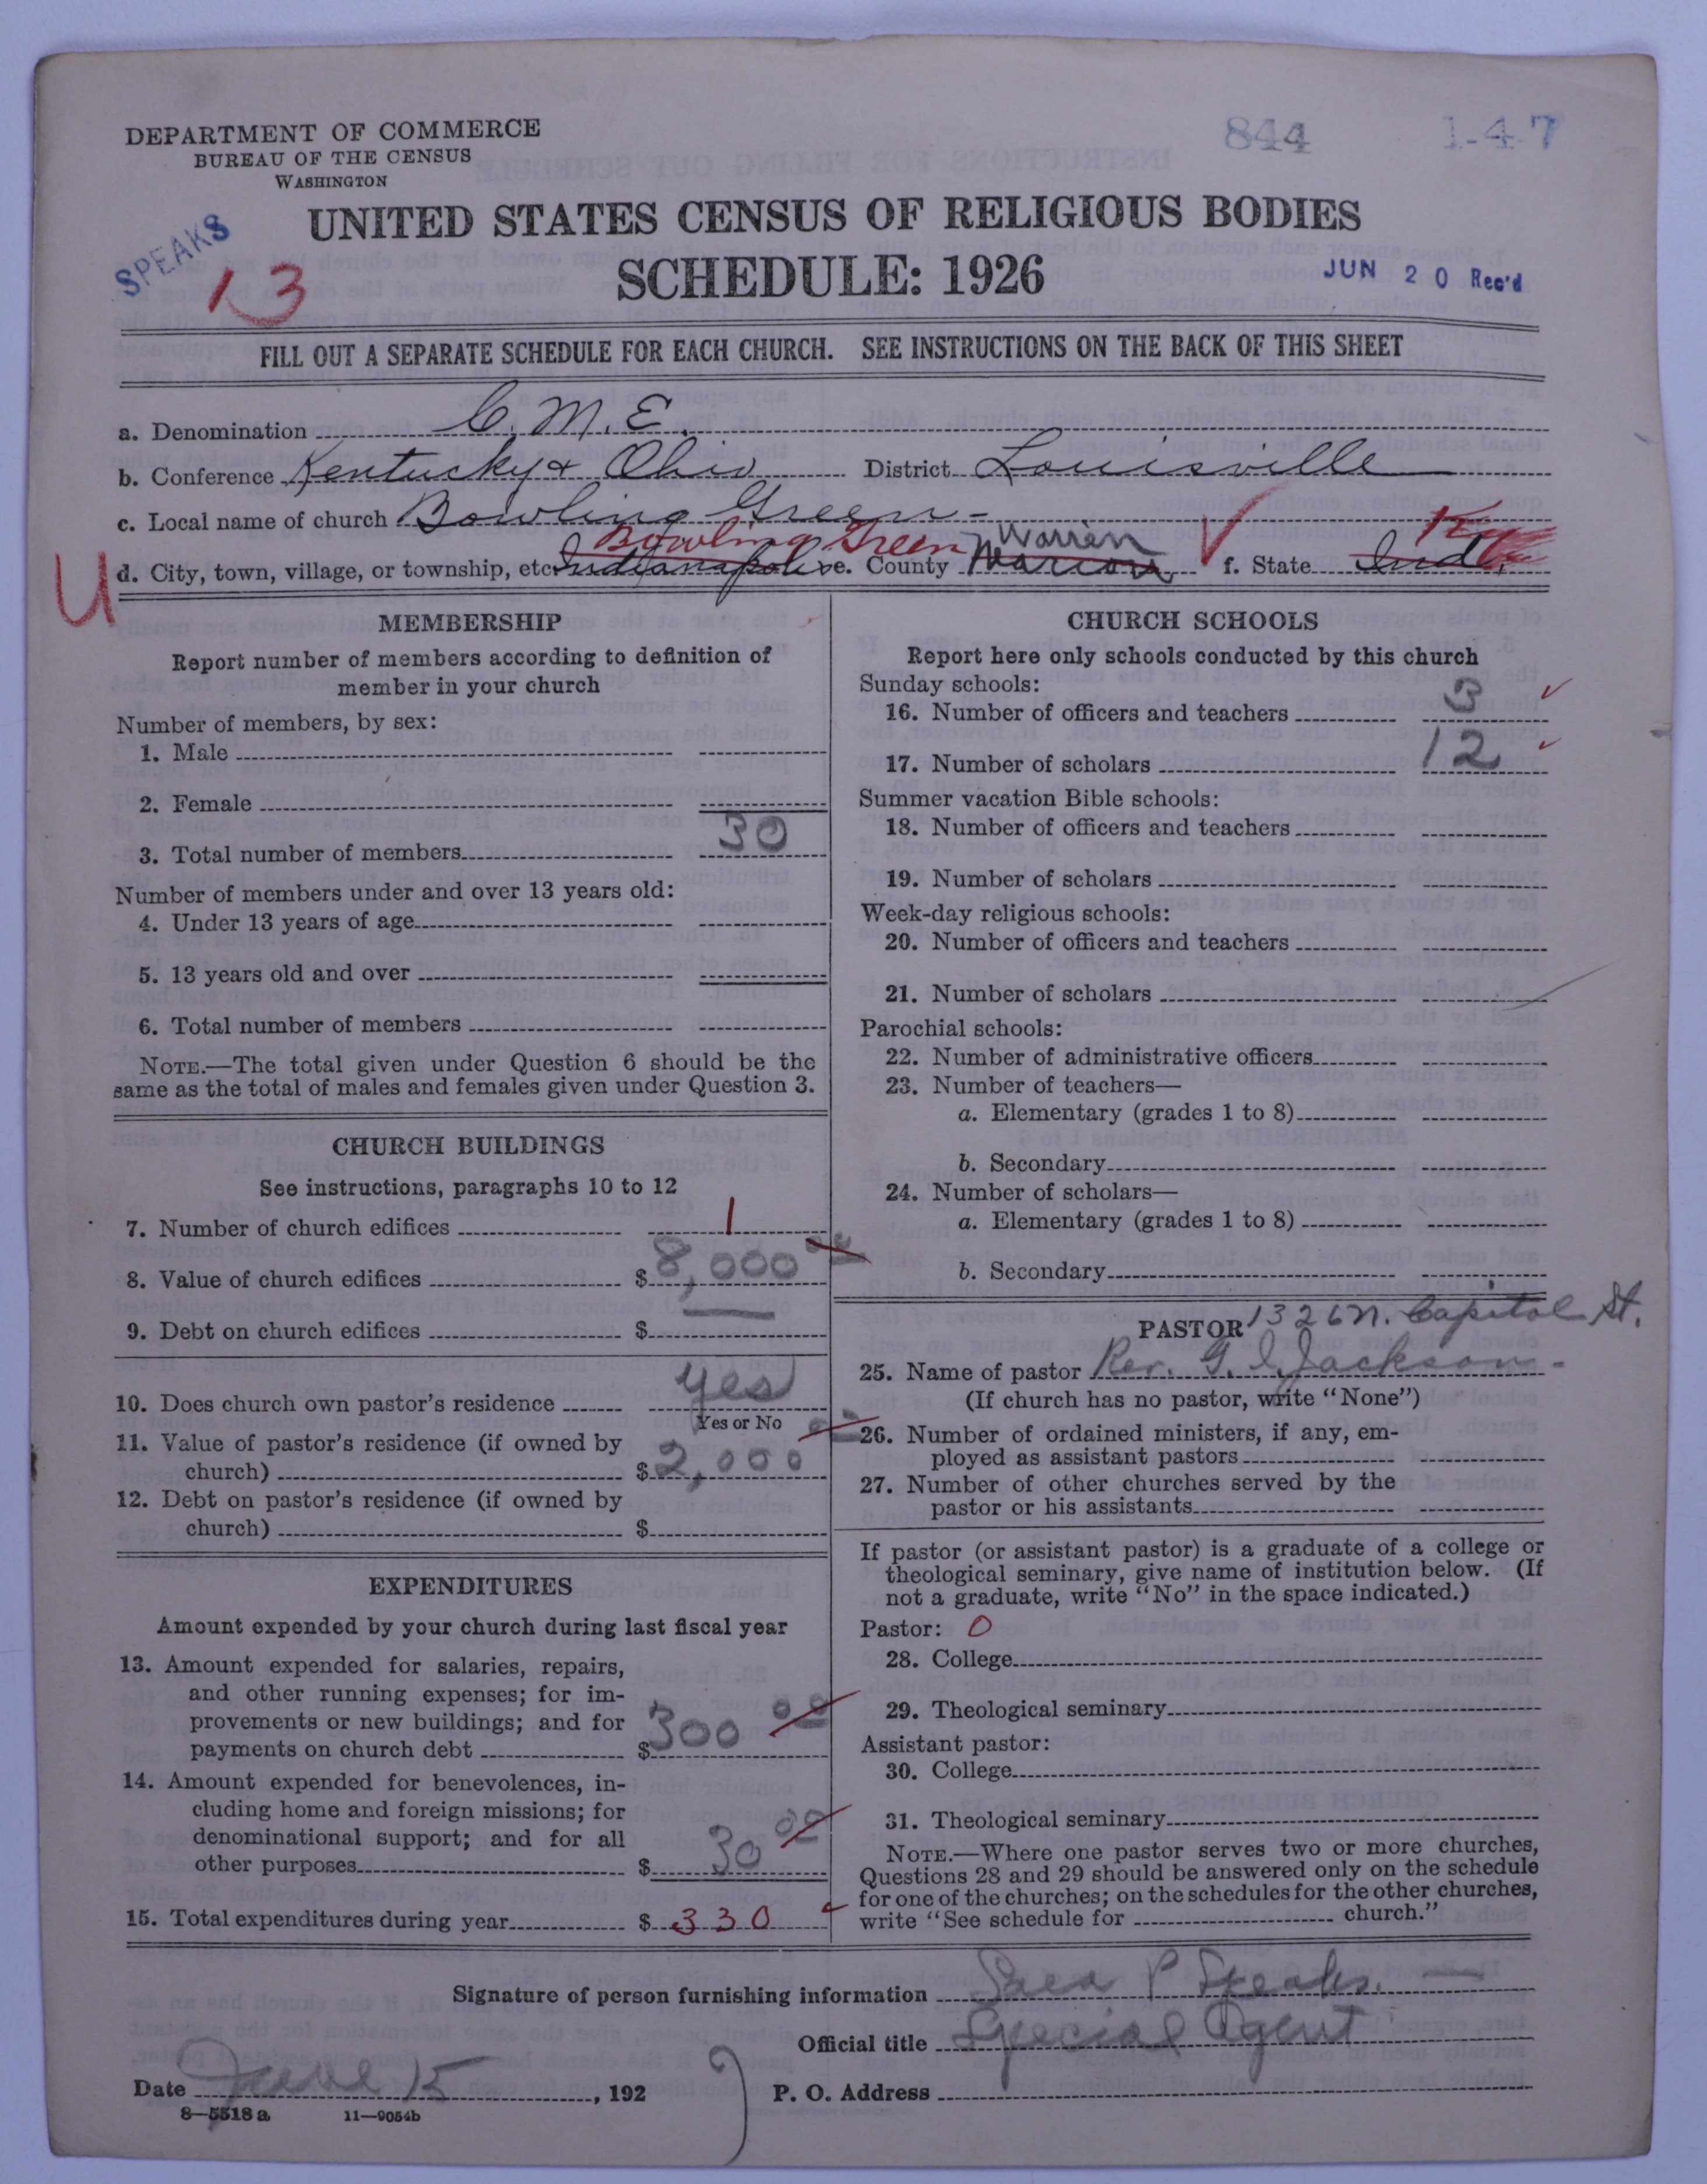 DEPARTMENT OF COMMERCE
BUREAU OF THE CENSUS
WASHINGTON
844 1-4-7
UNITED STATES CENSUS OF RELIGIOUS BODIES
SPEAKS
13
SCHEDULE: 1926
JUN 20 Rec'd
FILL OUT A SEPARATE SCHEDULE FOR EACH CHURCH. SEE INSTRUCTIONS ON THE BACK OF THIS SHEET
a. Denomination C. M. E.
b. Conference Kentucky & Ohio District Louisville
c. Local name of church Bowling Green
Bowling Green Warren Ky
U d. City, town, village, or township, etc. Indianapolis e. County Marion f. State Ind.
MEMBERSHIP
Report number of members according to definition of
member in your church
Number of members, by sex:
1. Male
2. Female
3. Total number of members 30
Number of members under and over 13 years old:
4. Under 13 years of age
5. 13 years old and over
6. Total number of members
NOTE.—The total given under Question 6 should be the
same as the total of males and females given under Question 3.
CHURCH BUILDINGS
See instructions, paragraphs 10 to 12
7. Number of church edifices 1
8. Value of church edifices $ 8,000 00
9. Debt on church edifices $
10. Does church own pastor's residence yes
Yes or No
11. Value of pastor's residence (if owned by
church) $ 2,000 00
12. Debt on pastor's residence (if owned by
church) $
EXPENDITURES
Amount expended by your church during last fiscal year
13. Amount expended for salaries, repairs,
and other running expenses; for im-
provements or new buildings; and for
payments on church debt $ 300 00
14. Amount expended for benevolences, in-
cluding home and foreign missions; for
denominational support; and for all
other purposes $ 30 00
15. Total expenditures during year $ 330
CHURCH SCHOOLS
Report here only schools conducted by this church
Sunday schools:
16. Number of officers and teachers 3
17. Number of scholars 12
Summer vacation Bible schools:
18. Number of officers and teachers
19. Number of scholars
Week-day religious schools:
20. Number of officers and teachers
21. Number of scholars
Parochial schools:
22. Number of administrative officers
23. Number of teachers—
a. Elementary (grades 1 to 8)
b. Secondary
24. Number of scholars—
a. Elementary (grades 1 to 8)
b. Secondary
PASTOR 1326 N. Capitol St.
25. Name of pastor Rev. G. I. Jackson
(If church has no pastor, write "None")
26. Number of ordained ministers, if any, em-
ployed as assistant pastors
27. Number of other churches served by the
pastor or his assistants
If pastor (or assistant pastor) is a graduate of a college or
theological seminary, give name of institution below. (If
not a graduate, write "No" in the space indicated.)
Pastor: 0
28. College
29. Theological seminary
Assistant pastor:
30. College
31. Theological seminary
NOTE.—Where one pastor serves two or more churches,
Questions 28 and 29 should be answered only on the schedule
for one of the churches; on the schedules for the other churches,
write "See schedule for church."
Signature of person furnishing information P Speaks.
Official title Special Agent
Date June 15, 192 7 P. O. Address
8—5518 a 11—9054b